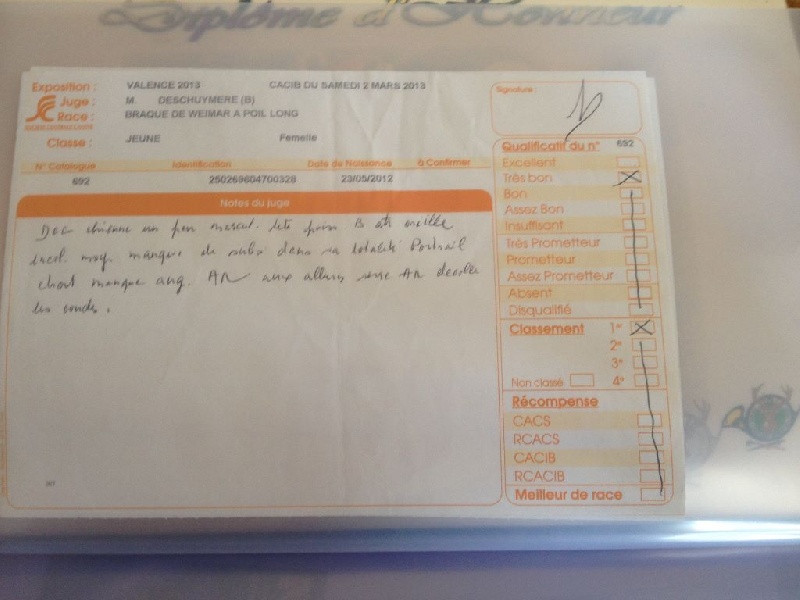 Diplôme d'Honneur
Exposition : VALENCE 2013 CACIB DU SAMEDI 2 MARS 2013
Juge : M. DESCHUYMERE (B)
Race : BRAQUE DE WEIMAR A POIL LONG
Classe : JEUNE Femelle
N° Catalogue Identification Date de Naissance à Confirmer
692 250269604700328 23/05/2012
Notes du juge
un peu B
manque de dans sa totalité Poitrail
manque ang. AR aux allures serre AR
les coudes.
Signature :
Qualificatif du n° 692
Excellent
Très bon
Bon
Assez Bon
Insuffisant
Très Prometteur
Prometteur
Assez Prometteur
Absent
Disqualifié
Classement 1er
2e
3e
Non classé 4e
Récompense
CACS
RCACS
CACIB
RCACIB
Meilleur de race